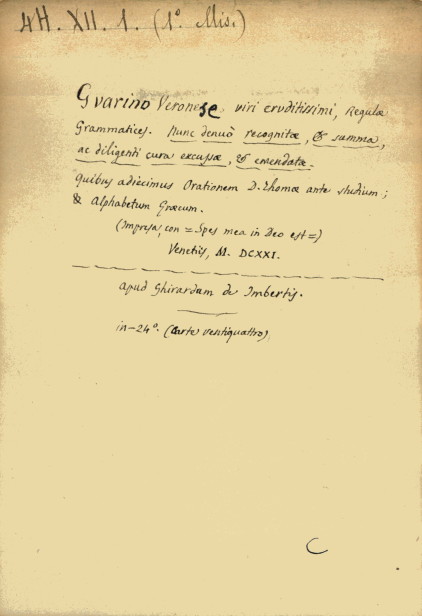 4H. XII. 1. (1º. Mis.)
Gvarino Veronese, viri eruditissimi, Regulæ
Grammatices. Nunc denuò recognitæ, & summa,
ac diligenti cura excussæ, & emendatæ.
Quibus adiecimus Orationem D. Thomæ ante studium;
& Alphabetum Græcum.
(Impresa, con =Spes mea in Deo est=)
Venetiis, M. DCXXI.
apud Ghirardum de Imbertis.
in-24º. (Carte ventiquattro)
C